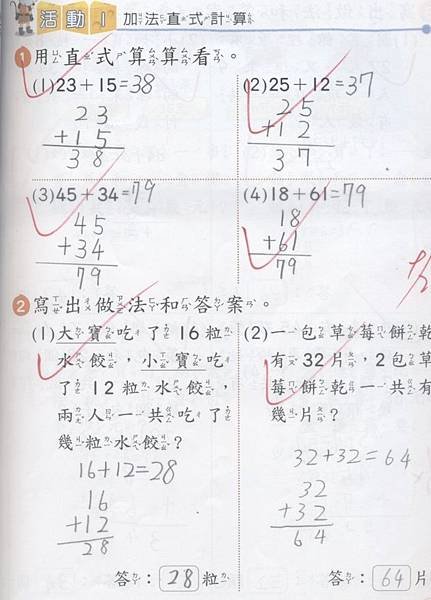 活動 1 加法直式計算
1 用直式算算看。
(1) 23+15=38
23
+15
38
(2) 25+12=37
25
+12
37
(3) 45+34=79
45
+34
79
(4) 18+61=79
18
+61
79
2 寫出做法和答案。
(1) 大寶吃了16粒
水餃，小寶吃
了12粒水餃，
兩人一共吃了
幾粒水餃？
16+12=28
16
+12
28
答：28粒
(2) 一包草莓餅乾
有32片，2包草
莓餅乾一共有
幾片？
32+32=64
32
+32
64
答：64片